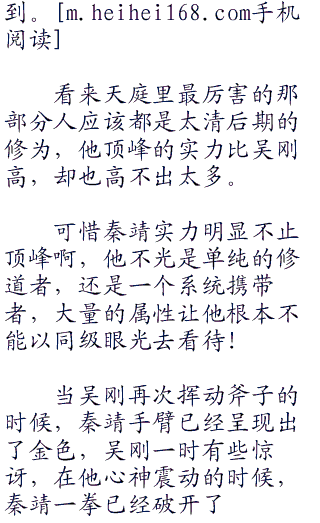 到。[m.heihei168.com手机
阅读]
看来天庭里最厉害的那
部分人应该都是太清后期的
修为，他顶峰的实力比吴刚
高，却也高不出太多。
可惜秦靖实力明显不止
顶峰啊，他不光是单纯的修
道者，还是一个系统携带
者，大量的属性让他根本不
能以同级眼光去看待！
当吴刚再次挥动斧子的
时候，秦靖手臂已经呈现出
了金色，吴刚一时有些惊
讶，在他心神震动的时候，
秦靖一拳已经破开了